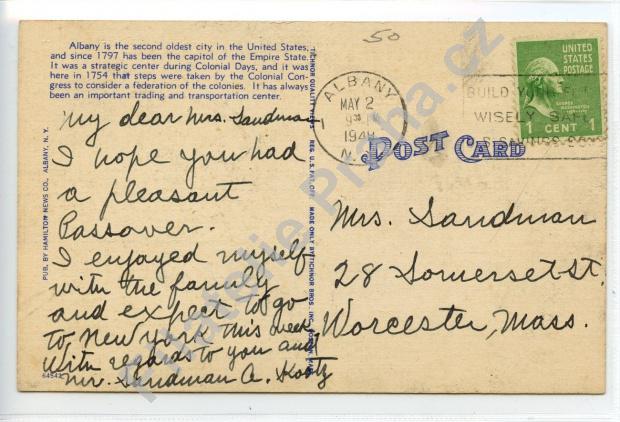 50
Albany is the second oldest city in the United States,
and since 1797 has been the capitol of the Empire State.
It was a strategic center during Colonial Days, and it was
here in 1754 that steps were taken by the Colonial Con-
gress to consider a federation of the colonies. It has always
been an important trading and transportation center.
My dear Mrs. Sandman
I hope you had
a pleasant
Passover.
I enjoyed myself
with the family
and expect to go
to New York this week
With regards to you and
Mr. Sandman A.
64542
PUB. BY HAMILTON NEWS CO., ALBANY, N. Y.
TICHNOR QUALITY VIEWS REG. U. S. PAT. OFF. MADE ONLY BY TICHNOR BROS. INC.
ALBANY
MAY 2
1948
N.
BUILD YOUR
WISELY SAFE
UNITED
STATES
POSTAGE
1 CENT 1
POST CARD
Mrs. Sandman
28 Somerset St.
Worcester, Mass.
Filatelie Praha.cz